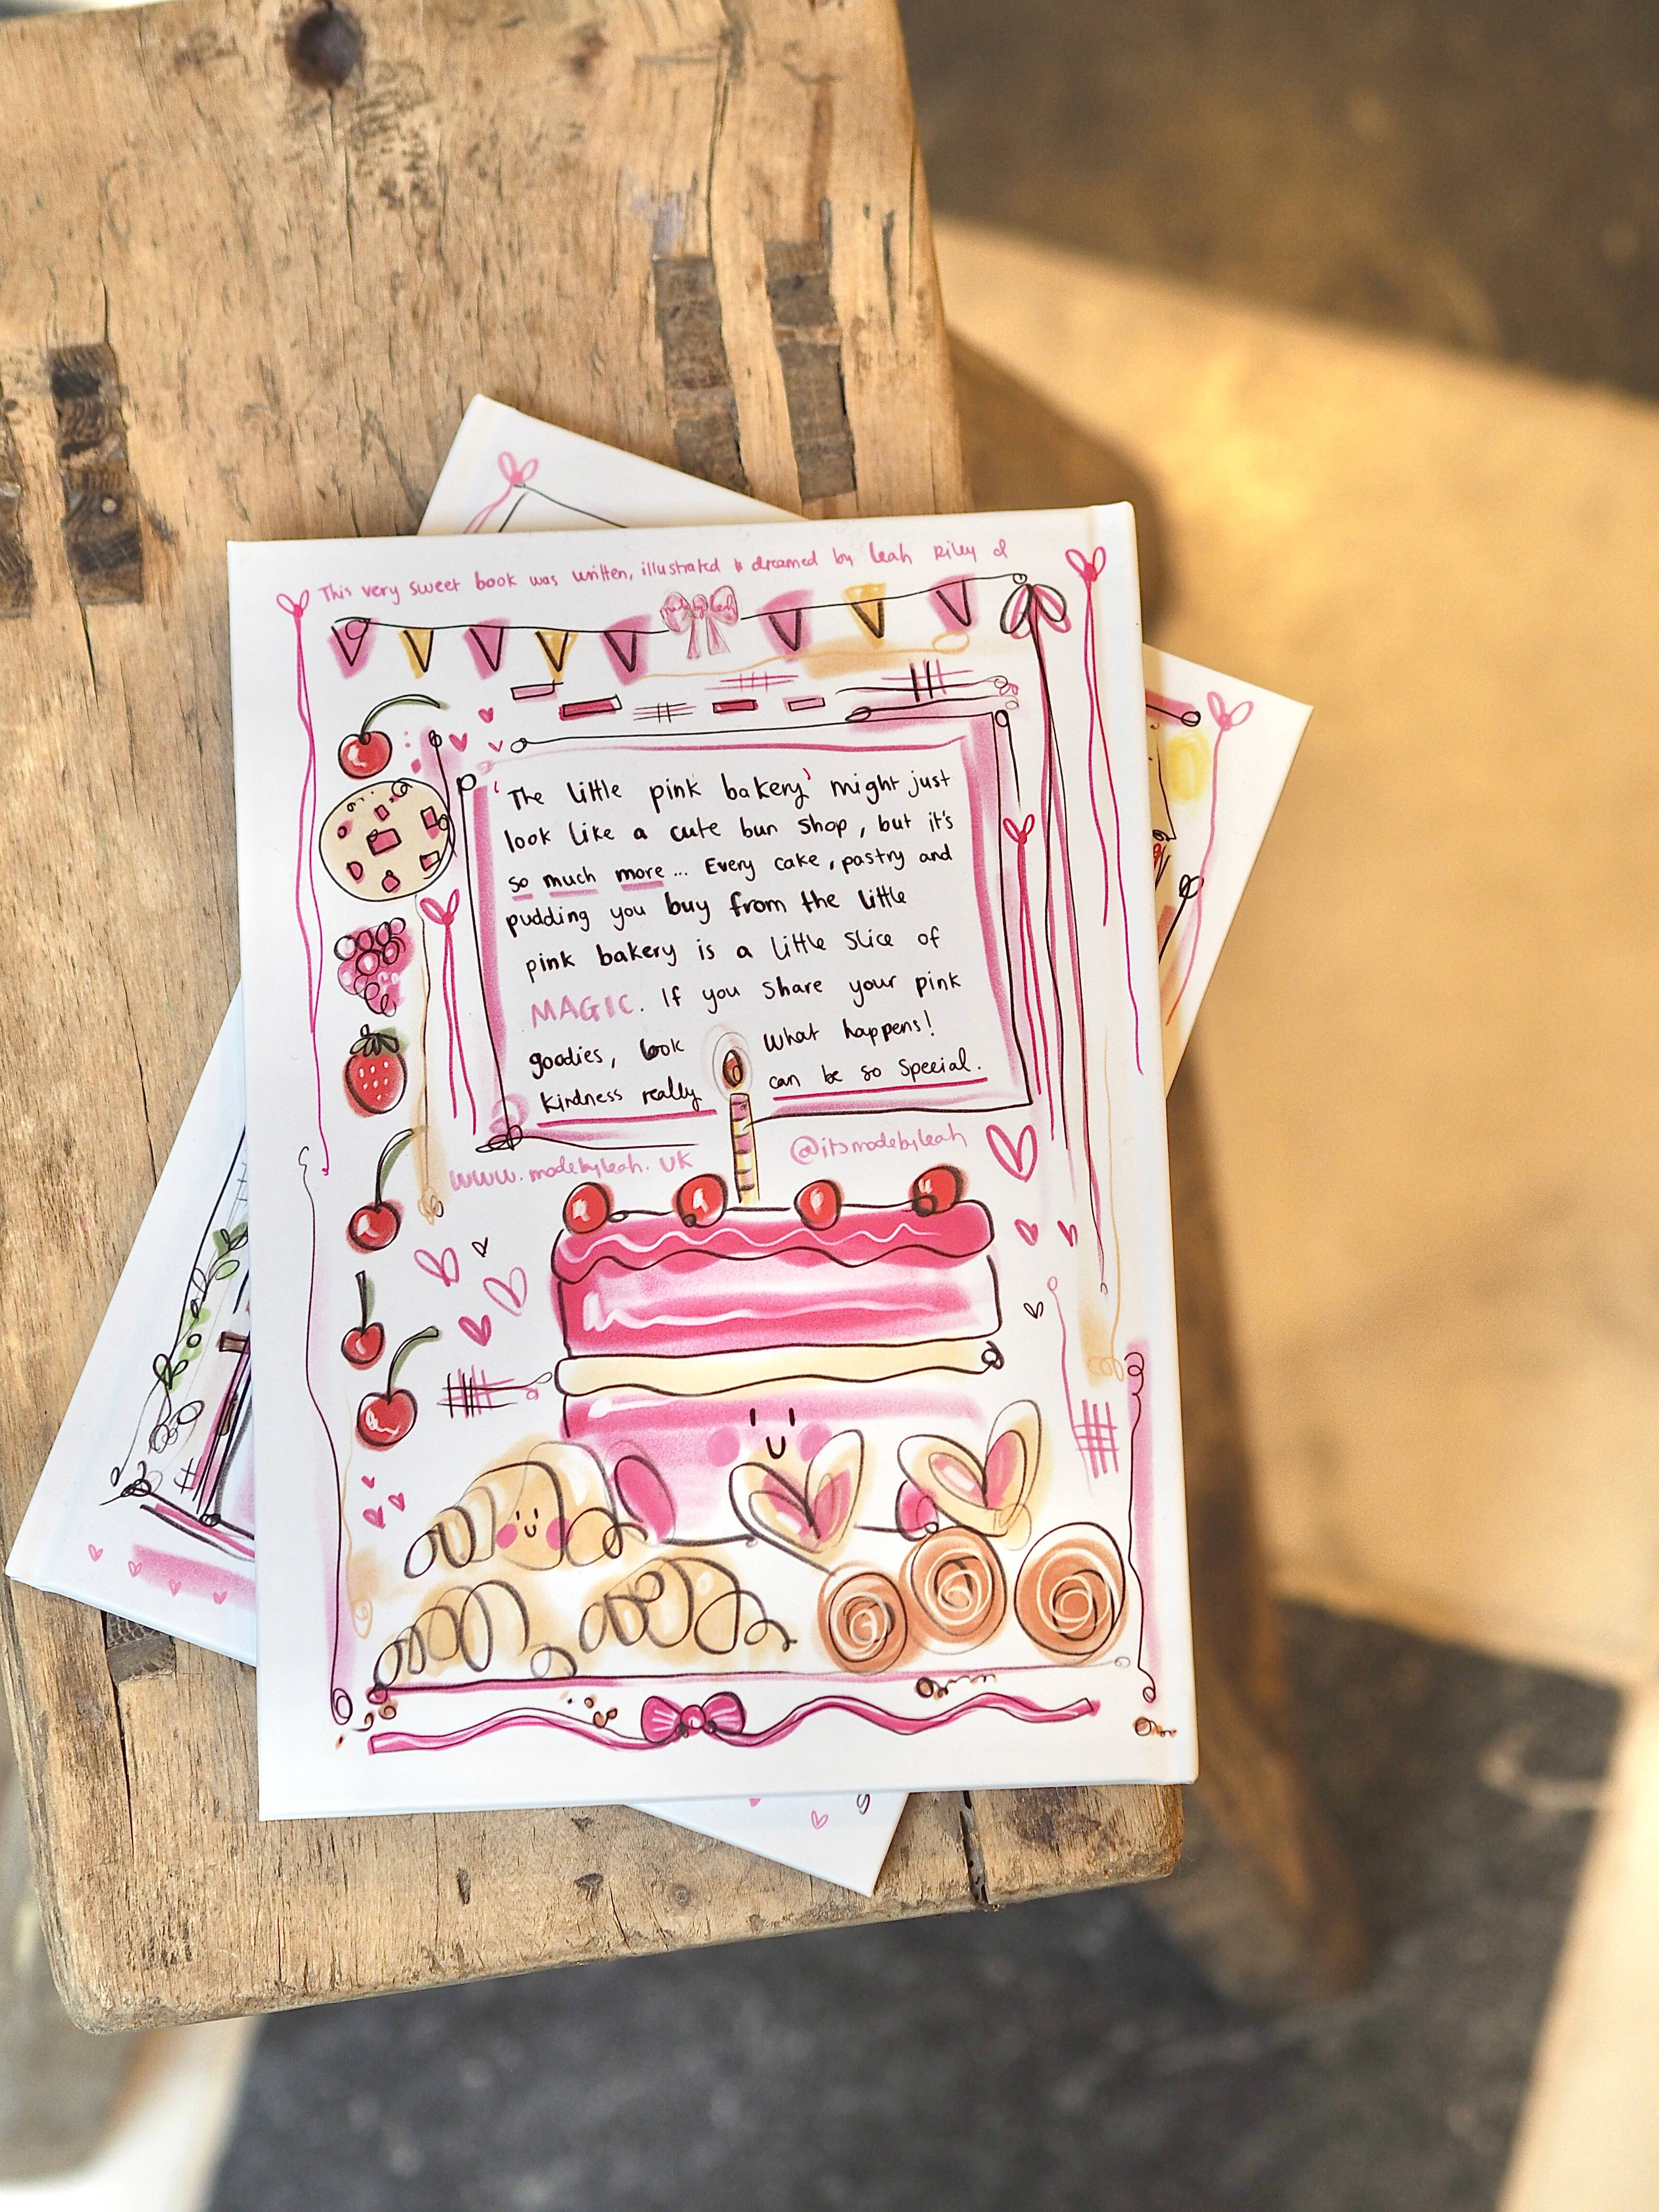 This very sweet book was written, illustrated & dreamed by Leah Riley
made by leah
'The little pink bakery' might just
look like a cute bun shop, but it's
so much more... Every cake, pastry and
pudding you buy from the little
pink bakery is a little slice of
MAGIC. If you share your pink
goodies, look what happens!
Kindness really can be so special.
www.madebyleah.uk
@itsmadebyleah